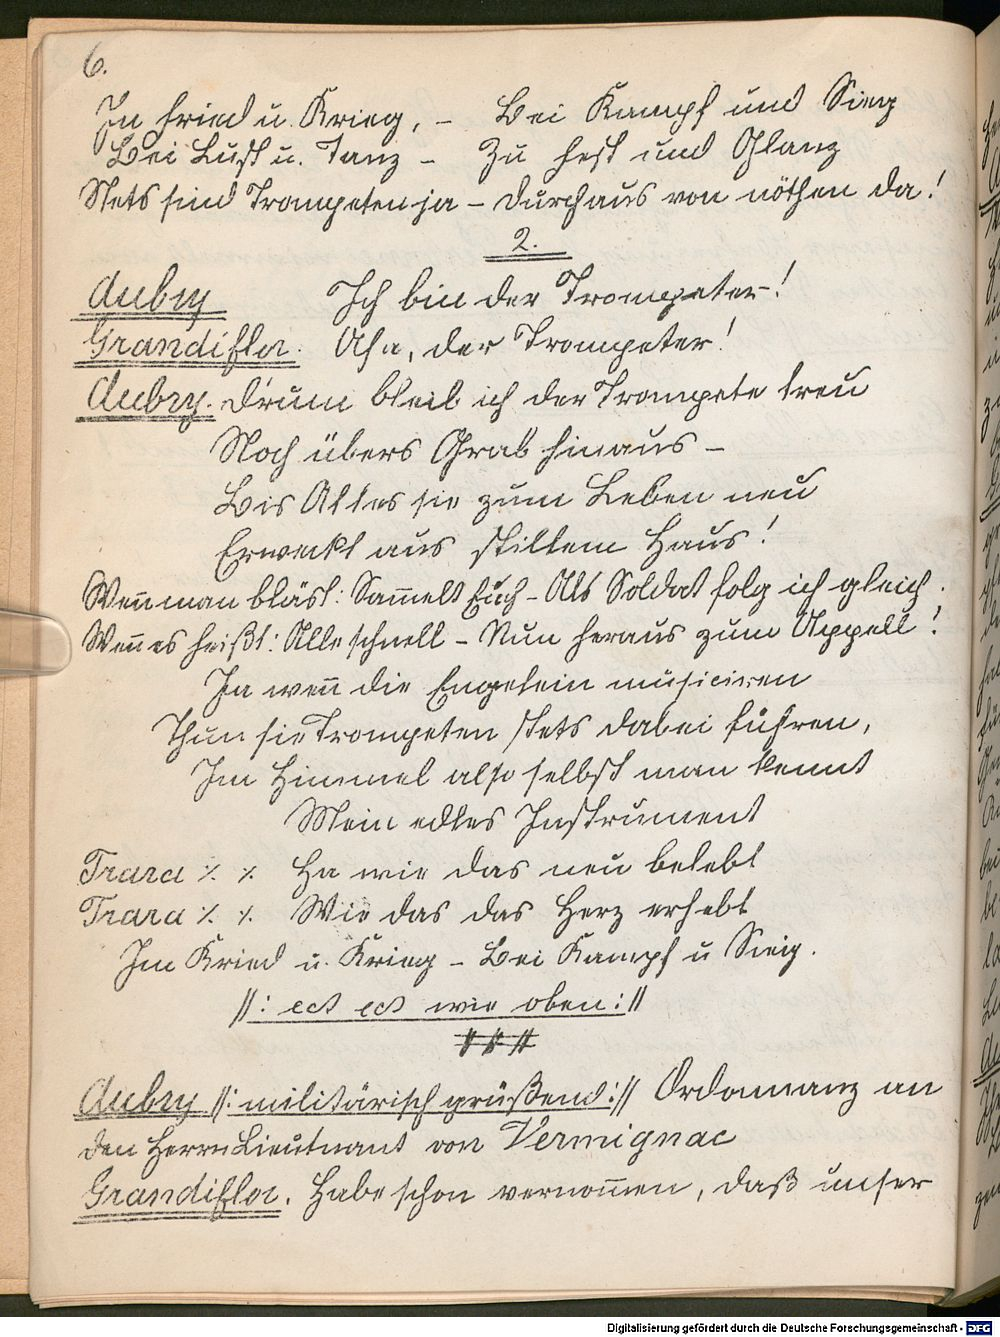 6.
In Fried u. Krieg, – Bei Kampf und Sieg
Bei Lust u. Tanz – Zu Fest und Glanz
Stets sind Trompeten ja – durchaus von nöthen da!
2.
Aubry Ich bin der Trompeter!
Grandiflor. Aha, der Trompeter!
Aubry. Drum bleib ich der Trompete treu
Noch übers Grab hinaus –
Bis Alles sie zum Leben neu
Erweckt aus stillem Haus!
Weñ man bläst: Sam̄elt Euch – Als Soldat folg ich gleich.
Weñ es heißt: Alle schnell – Nun heraus zum Appell!
Ja weñ die Engelein musiciren
Thun sie Trompeten stets dabei führen,
Im Himmel also selbst man kennt
Mein edles Instrument
Trara ٪ ٪ Ha wie das neu belebt
Trara ٪ ٪ Wie das das Herz erhebt
Im Fried u. Krieg – Bei Kampf u Sieg.
//: ect ect wie oben ://
Aubry //: militärisch grüßend: // Ordonnanz an
den Herrn Lieutnant von Vermignac
Grandiflor. Habe schon vernom̄en, daß unser
Digitalisierung gefördert durch die Deutsche Forschungsgemeinschaft - DFG